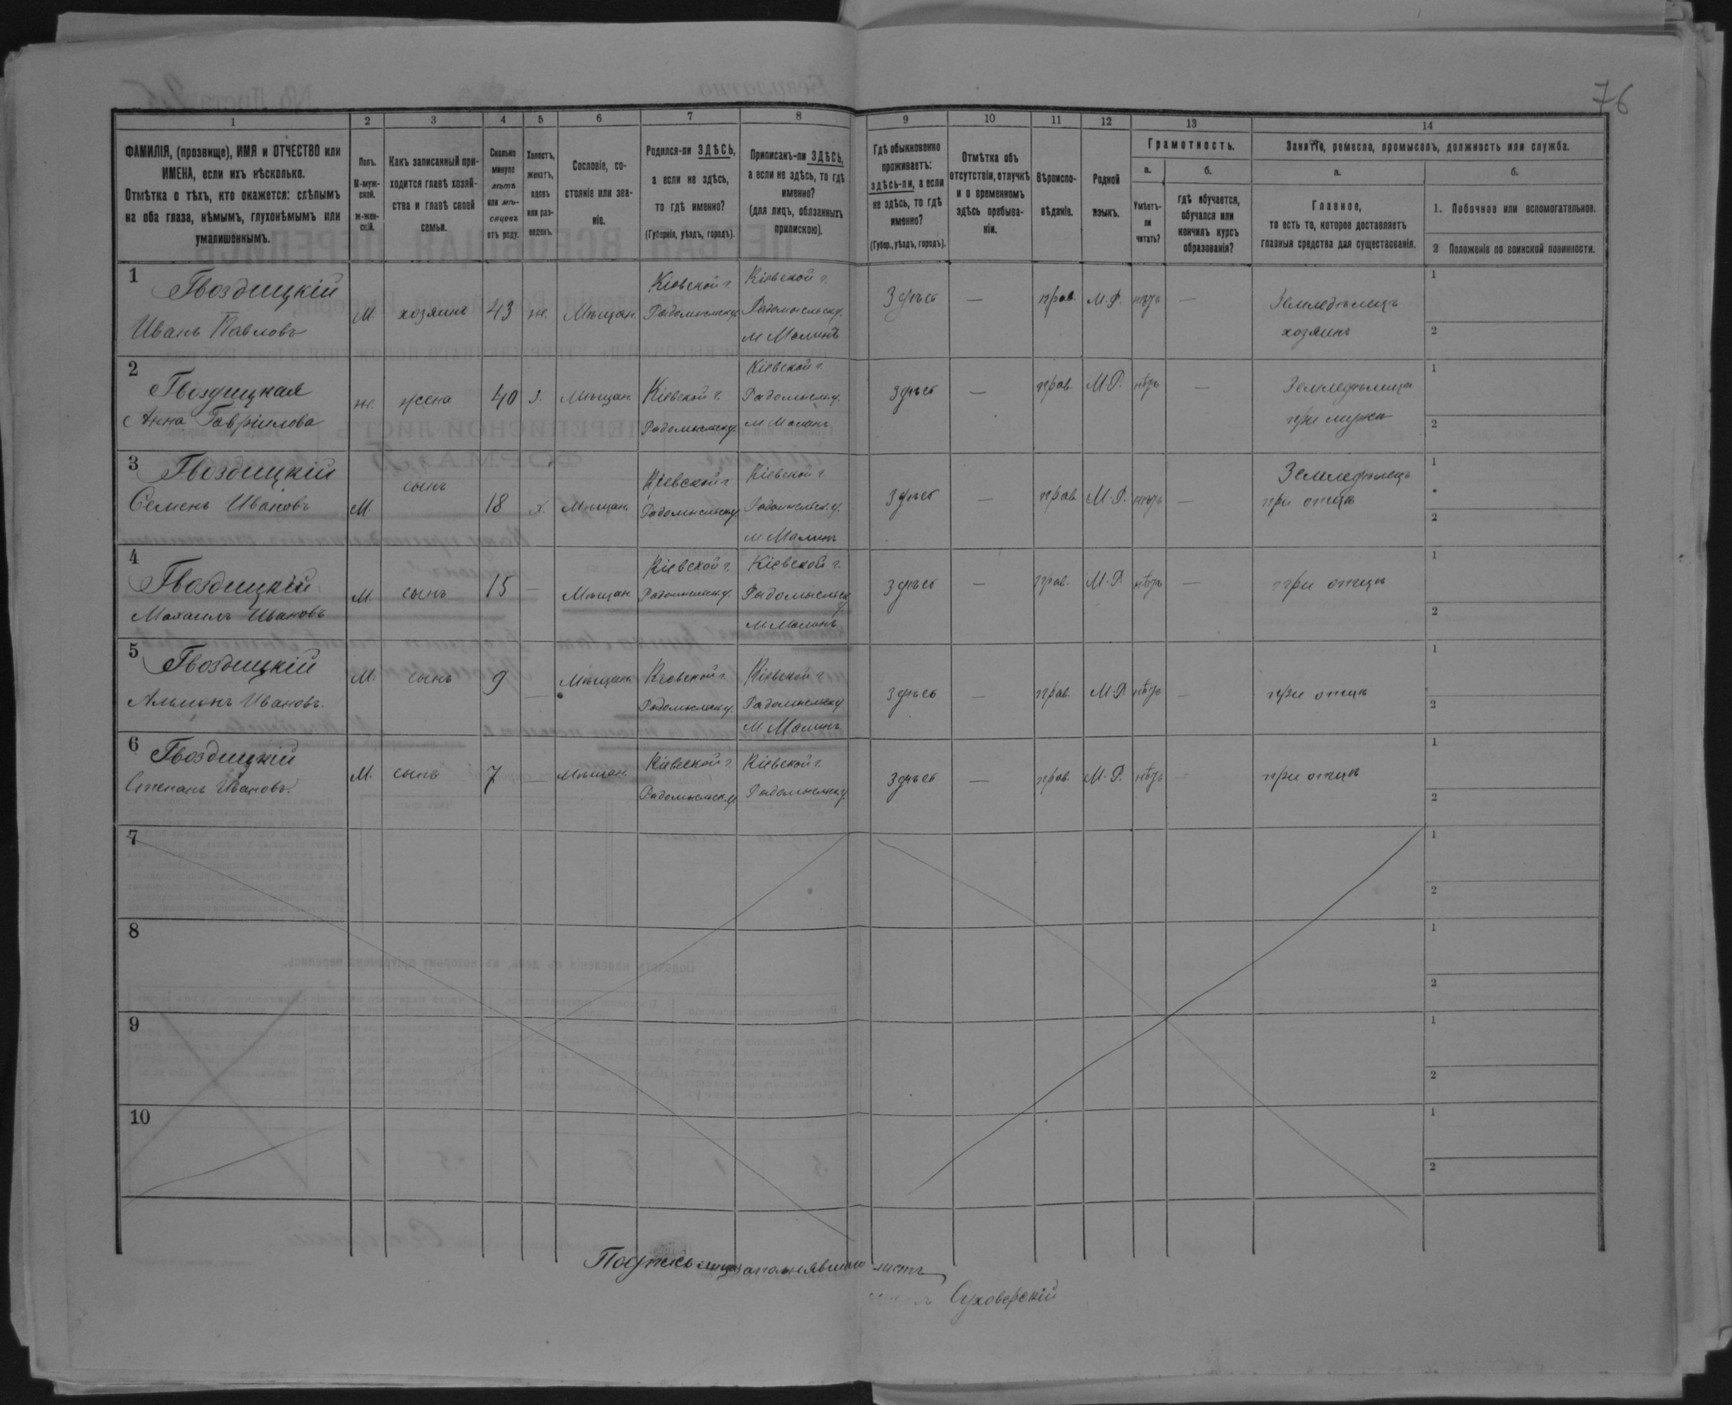 76
1 2 3 4 5 6 7 8 9 10 11 12 13 14
ФАМИЛІЯ, (прозвище), ИМЯ и ОТЧЕСТВО или
ИМЕНА, если ихъ нѣсколько.
Отмѣтка о тѣхъ, кто окажется: слѣпымъ
на оба глаза, нѣмымъ, глухонѣмымъ или
умалишеннымъ.
Полъ.
М-муж-
ской.
ж-жен-
скій.
Какъ записанный при-
ходится главѣ хозяй-
ства и главѣ своей
семьи.
Сколько
минуло
лѣтъ
или мѣ-
сяцевъ
отъ роду.
Холостъ,
женатъ,
вдовъ
или раз-
веденъ.
Сословіе, со-
стояніе или зва-
ніе.
Родился-ли ЗДѢСЬ,
а если не здѣсь,
то гдѣ именно?
(Губернія, уѣздъ, городъ).
Приписанъ-ли ЗДѢСЬ,
а если не здѣсь, то гдѣ
именно?
(для лицъ, обязанныхъ
припискою).
Гдѣ обыкновенно
проживаетъ:
здѣсь-ли, а если
не здѣсь, то гдѣ
именно?
(Губер., уѣздъ, городъ).
Отмѣтка объ
отсутствіи, отлучкѣ
и о временномъ
здѣсь пребыва-
ніи.
Вѣроиспо-
вѣданіе.
Родной
языкъ.
Грамотность.
а.
Умѣетъ-
ли
читать?
б.
гдѣ обучается,
обучался или
кончилъ курсъ
образованія?
Занятіе, ремесло, промыселъ, должность или служба.
а.
Главное,
то есть то, которое доставляетъ
главныя средства для существованія.
б.
1. Побочное или вспомогательное.
2 Положеніе по воинской повинности.
1 Гвоздицкій Кіевской г. Кіевской г. 1
Иванъ Павловъ М. хозяинъ 43 же. Мѣщан. Радомысльску. Радомысльску. Здѣсь — прав. М.Р. нѣтъ — Земледѣлецъ
м Малинъ хозяинъ 2
2 Гвоздицкая Кіевской г. 1
Анна Гаврилова же. жена 40 з. Мѣщан Кіевской г. Радомысльску. здѣсь — прав. М.Р. нѣтъ — Земледѣлица
Радомысльску. м Малинъ при мужѣ 2
3 Гвоздицкій сынъ Кіевской г Кіевской г. Земледѣлецъ 1
Семенъ Ивановъ М. 18 х. Мѣщан Радомысльску. Радомысльску. здѣсь — прав М.Р. нѣтъ — при отцѣ
м Малинъ 2
4 Гвоздицкій Кіевской г. Кіевской г. 1
Михаилъ Ивановъ М сынъ 15 — Мѣщан Радомысльску. Радомысльску здѣсь — прав. М.Р. нѣтъ — при отцѣ
м Малинъ 2
5 Гвоздицкій М. сынъ 9 — Мѣщан Кіевской г Кіевской г. 1
Ивановъ. Радомысльску. Радомысльску здѣсь — прав М.Р нѣтъ — при отцѣ
м Малинъ 2
6 Гвоздицкій Кіевской г. Кіевской г. 1
Степанъ Ивановъ. М. сынъ 7 — Мѣщан Радомысльску Радомысльску. здѣсь — прав М.Р. нѣтъ — при отцѣ
2
7 1
2
8 1
2
9 1
2
10 1
2
Подпись лица заполнявшаго листъ
Суховерскій